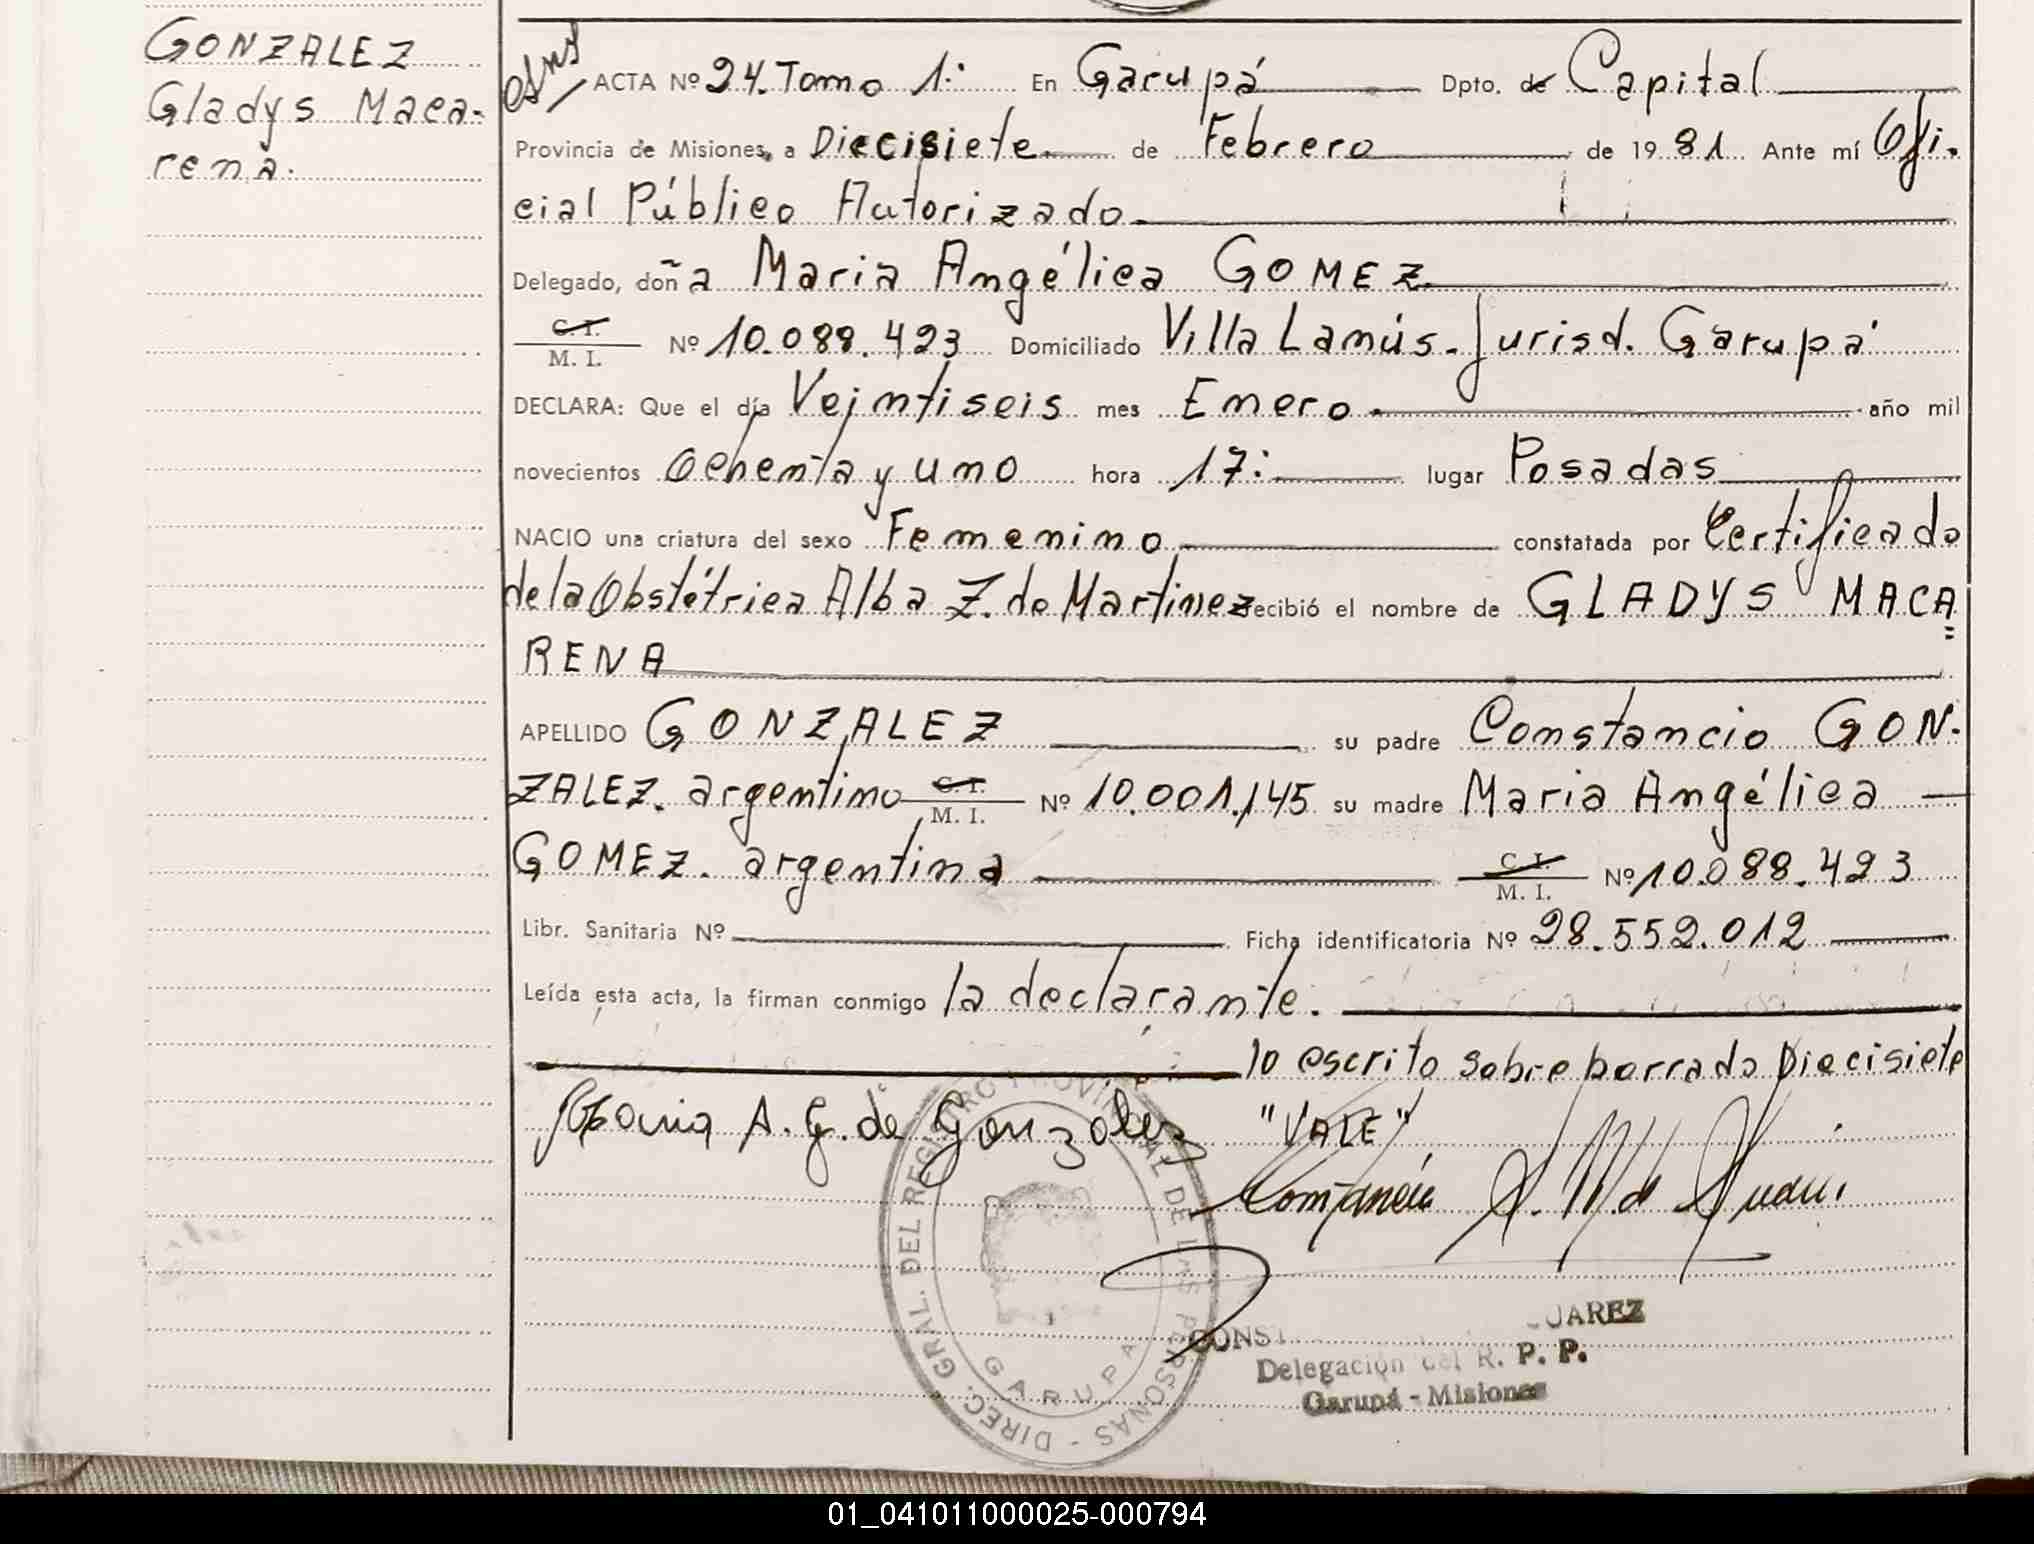 GONZALEZ
Gladys Maca-
rena.
ACTA Nº 24. Tomo 1º En Garupá Dpto. de Capital
Provincia de Misiones, a Diecisiete de Febrero de 1981 Ante mí Ofi-
cial Público Autorizado.
Delegado, doña Maria Angélica GOMEZ
C. I.
M. I. Nº 10.088.423 Domiciliado Villa Lanús. Jurisd. Garupá
DECLARA: Que el día Veintiseis mes Enero. año mil
novecientos Ochenta y uno hora 17: lugar Posadas
NACIO una criatura del sexo Femenino constatada por Certificado
de la Obstétrica Alba Z. de Martinez recibió el nombre de GLADYS MACA
RENA
APELLIDO GONZALEZ su padre Constancio GON-
ZALEZ. argentino C. I.
M. I. Nº 10.001.145 su madre Maria Angélica
GOMEZ. argentina C. I.
M. I. Nº 10.088.423
Libr. Sanitaria Nº Ficha identificatoria Nº 28.552.012
Leída esta acta, la firman conmigo la declarante.
lo escrito sobre borrado Diecisiete
Maria A. G. de Gonzalez "VALE"
DIREC. GRAL. DEL REGISTRO PROVINCIAL DE LAS PERSONAS -
GARUPA
CONST UAREZ
Delegación del R. P. P.
Garupá - Misiones
01_041011000025-000794